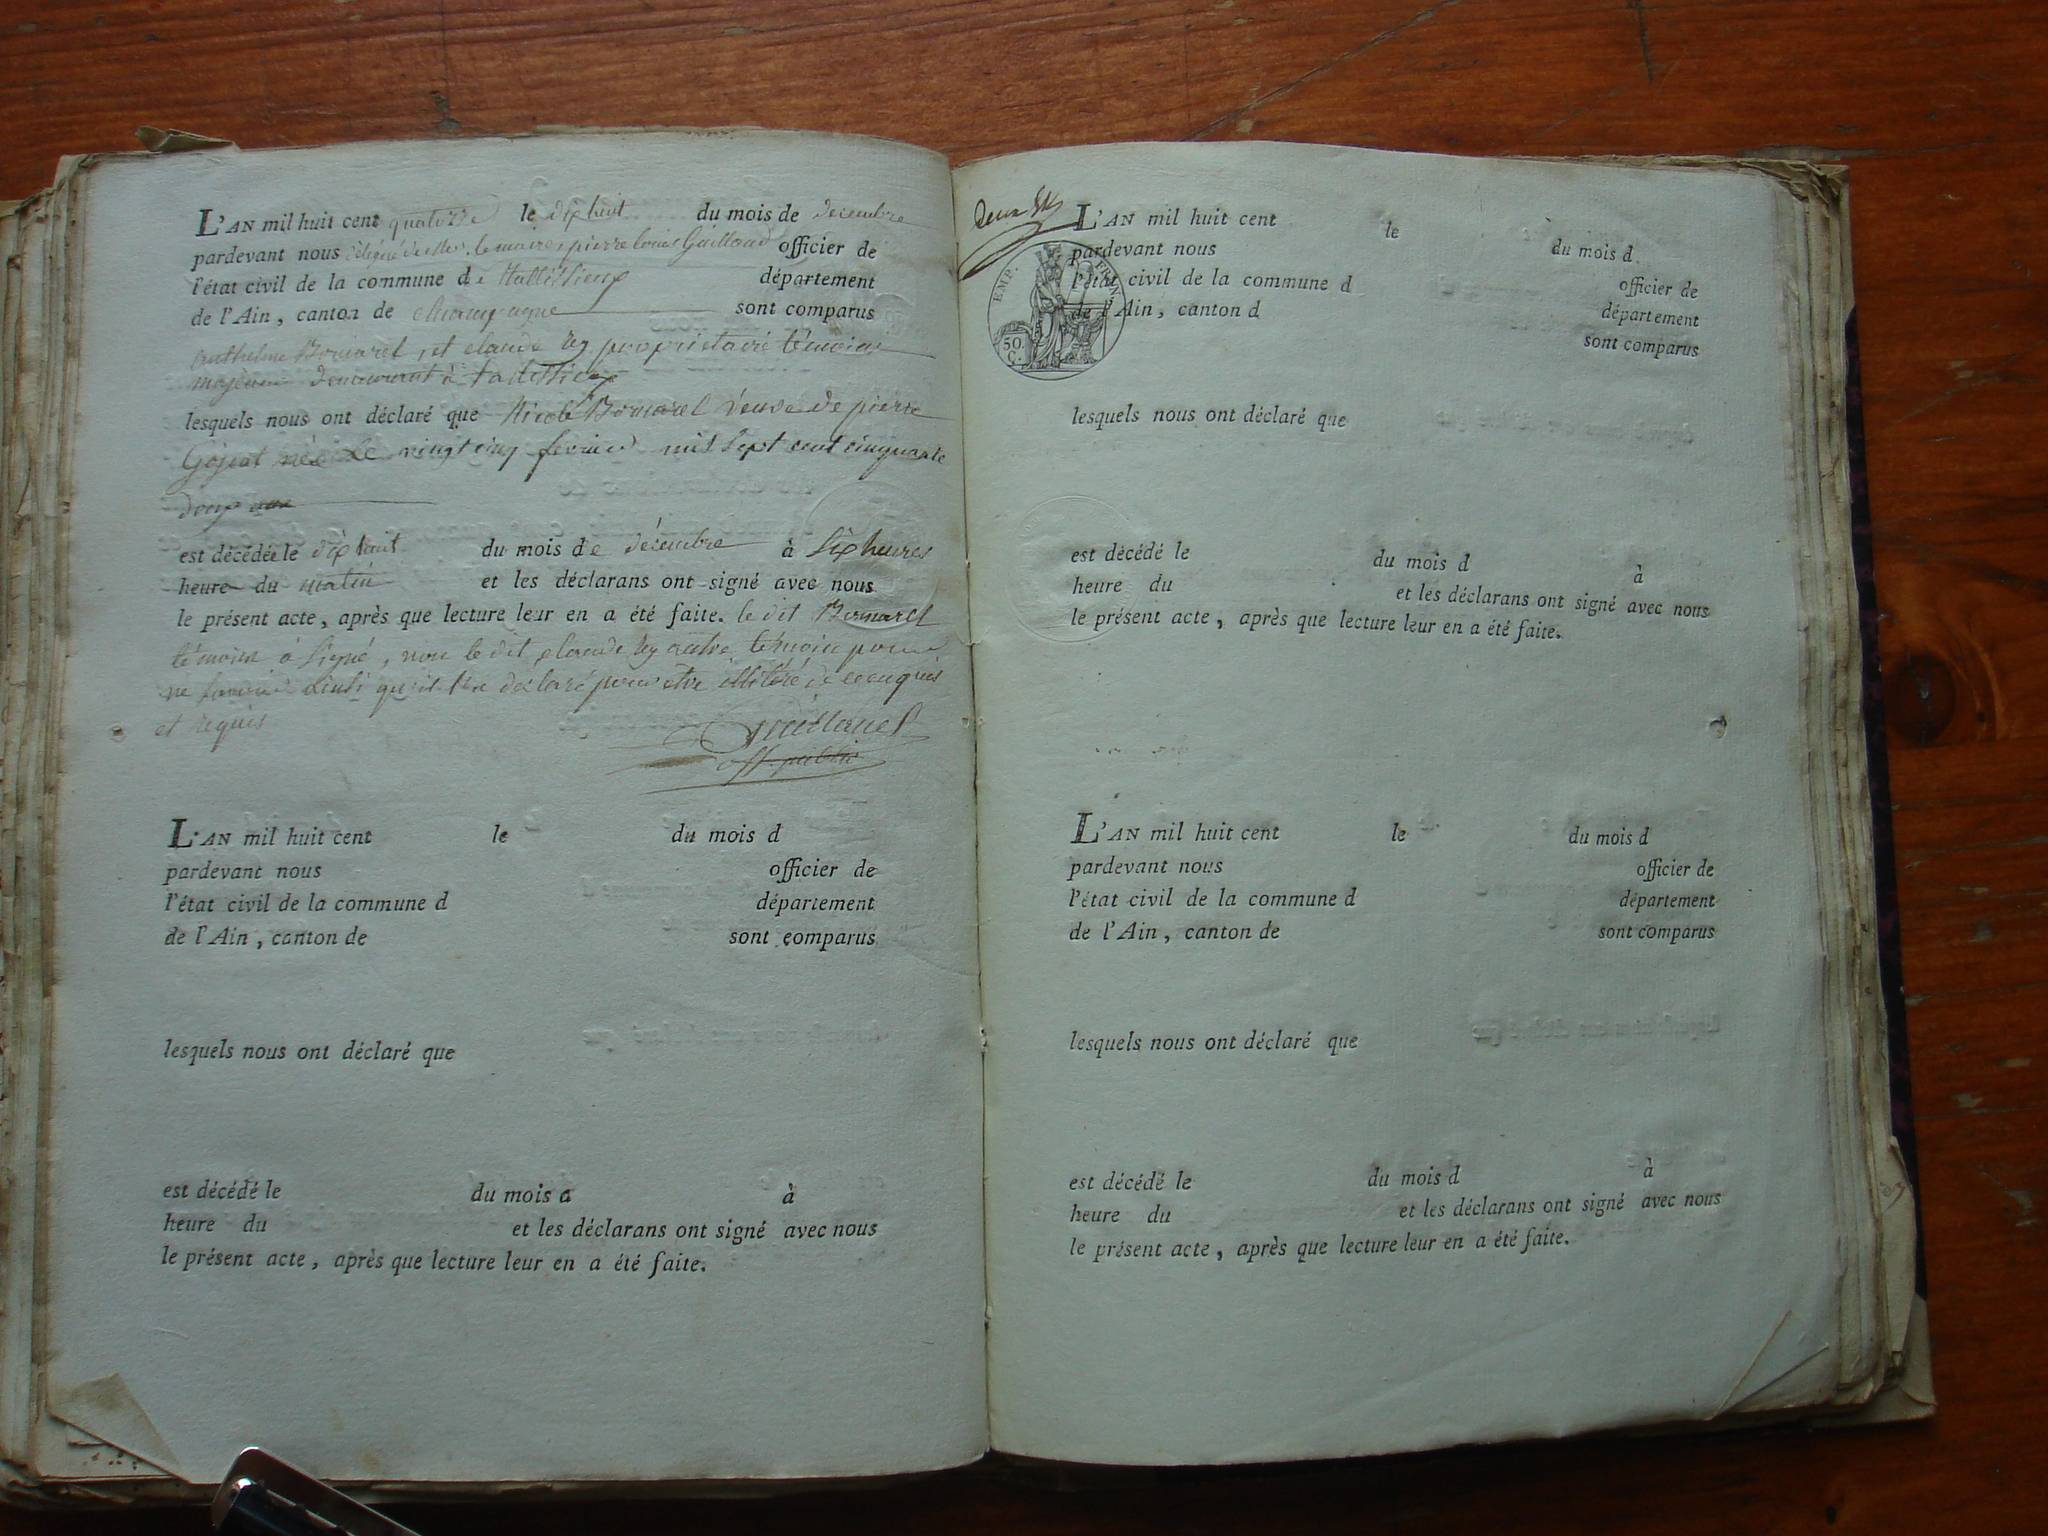 L'AN mil huit cent quatorze le dix huit du mois de decembre
pardevant nous délégué de Mr. le maire pierre louis Guilland officier de
l'état civil de la commune de département
de l'Ain, canton de champagne sont comparus
anthelme Bornarel, et claude Rey propriétaire témoins
majeurs demeurant à
lesquels nous ont déclaré que Nicole Bornarel veuve de pierre
Gojoat née le vingt cinq fevrier mil sept cent cinquante
deux
est décédée le dix huit du mois de décembre à six heures
heure du matin et les déclarans ont signé avec nous
le présent acte, après que lecture leur en a été faite. le dit Bornarel
témoins a signé, non le dit claude Rey autre témoin pour
ne savoir ainsi qu'il l'a déclaré pour être illitéré de ce enquis
et requis
off. public
L'AN mil huit cent le du mois d
pardevant nous officier de
l'état civil de la commune d département
de l'Ain, canton de sont comparus
lesquels nous ont déclaré que
est décédé le du mois d à
heure du et les déclarans ont signé avec nous
le présent acte, après que lecture leur en a été faite.
L'AN mil huit cent le du mois d
pardevant nous officier de
l'état civil de la commune d département
de l'Ain, canton d sont comparus
EMP. FRAN.
50.
C.
lesquels nous ont déclaré que
est décédé le du mois d à
heure du et les déclarans ont signé avec nous
le présent acte, après que lecture leur en a été faite.
L'AN mil huit cent le du mois d
pardevant nous officier de
l'état civil de la commune d département
de l'Ain, canton de sont comparus
lesquels nous ont déclaré que
est décédé le du mois d à
heure du et les déclarans ont signé avec nous
le présent acte, après que lecture leur en a été faite.